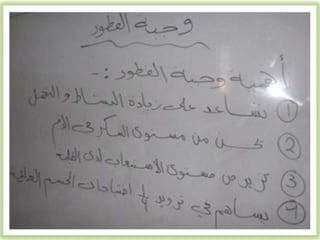 وجبة الفطور
أهمية وجبة الفطور :-
① تساعد على زيادة النشاط والتحمل
② تحسن من مستوى السكر في الدم
③ تزيد من مستوى الاستيعاب لدى الطلبة
④ يساهم في تزويد ¼ احتياجات الجسم الغذائية